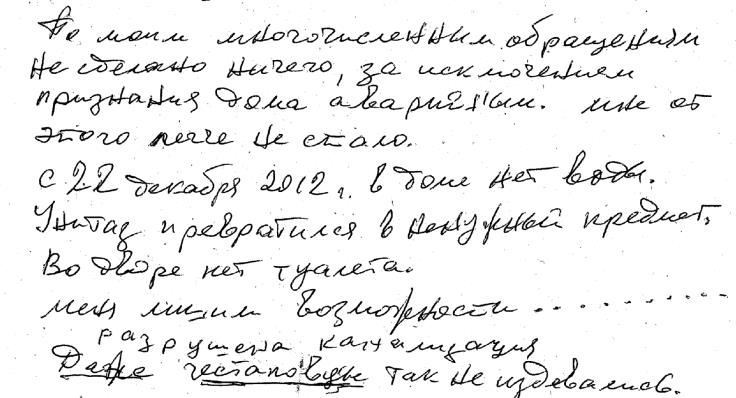 По моим многочисленным обращениям
не сделано ничего, за исключением
признания дома аварийным. мне от
этого легче не стало.
с 22 декабря 2012 г. в доме нет воды.
Унитаз превратился в ненужный предмет.
Во дворе нет туалета.
меня лишили возможности ...........
разрушена канализация
Даже гестаповцы так не издевались.